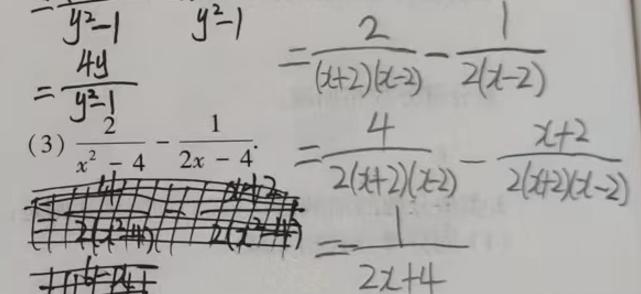 y²-1    y²-1
= 4y/(y²-1)
(3) 2/(x² - 4) - 1/(2x - 4).
= 2/((x+2)(x-2)) - 1/(2(x-2))
= 4/(2(x+2)(x-2)) - (x+2)/(2(x+2)(x-2))
= -1/(2x+4)